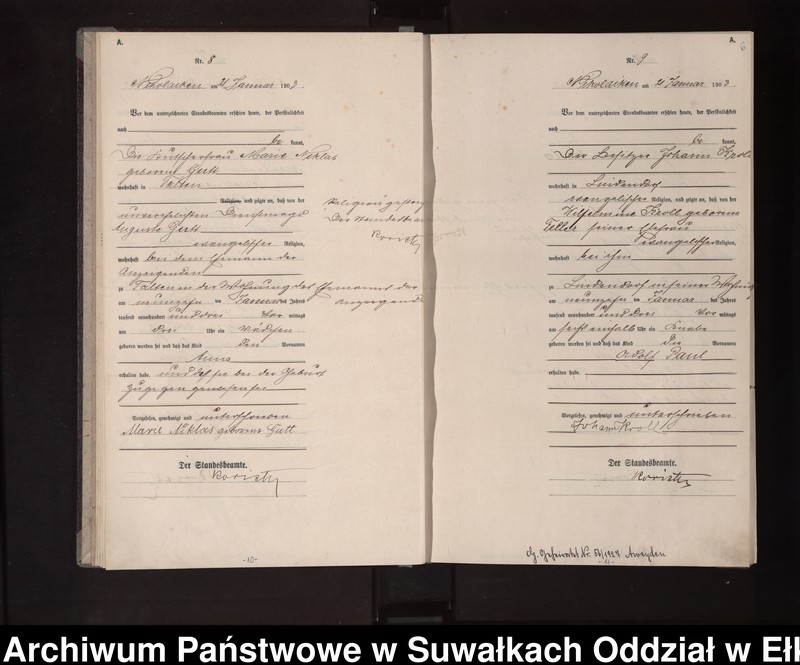 A.
Nr. 8
Nikolaiken am 21 Januar 1903.
Vor dem unterzeichneten Standesbeamten erschien heute, der Persönlichkeit
nach
be kannt,
Die Kutscherfrau Marie Niklas
geborene Gutt
wohnhaft in Talten
Religion, und zeigte an, daß von der
unverehelichten Dienstmagd
Auguste Gutt
evangelischer Religion,
wohnhaft bei dem Ehemann der
Anzeigenden
zu Talten in der Wohnung des Ehemannes der
Anzeigenden
am neunzehn ten Januar des Jahres
tausend neunhundert und drei Vor mittags
um drei Uhr ein Mädchen
geboren worden sei und daß das Kind den Vornamen
Anna
erhalten habe. und daß sie bei der Geburt
zugegen gewesen sei
Vorgelesen, genehmigt und unterschrieben
Marie Niklas geborene Gutt
Der Standesbeamte.
Religion gestr
Der Standesbeamte
-10-
A.
6
Nr. 9
Nikolaiken am 21 Januar 1903.
Vor dem unterzeichneten Standesbeamten erschien heute, der Persönlichkeit
nach
be kannt,
Der Besitzer Johann Kroll
wohnhaft in Lindendorf
evangelischer Religion, und zeigte an, daß von der
Wilhelmine Kroll geborene
seiner Ehefrau
evangelischer Religion,
wohnhaft bei ihm
zu Lindendorf in seiner Wohnung
am neunzehn ten Januar des Jahres
tausend neunhundert und drei Vor mittags
um sechs einhalb Uhr ein Knabe
geboren worden sei und daß das Kind die Vornamen
Adolf Paul
erhalten habe.
Vorgelesen, genehmigt und unterschrieben
Johann Kroll
Der Standesbeamte.
Aweyden
-11-
Archiwum Państwowe w Suwałkach Oddział w Eł